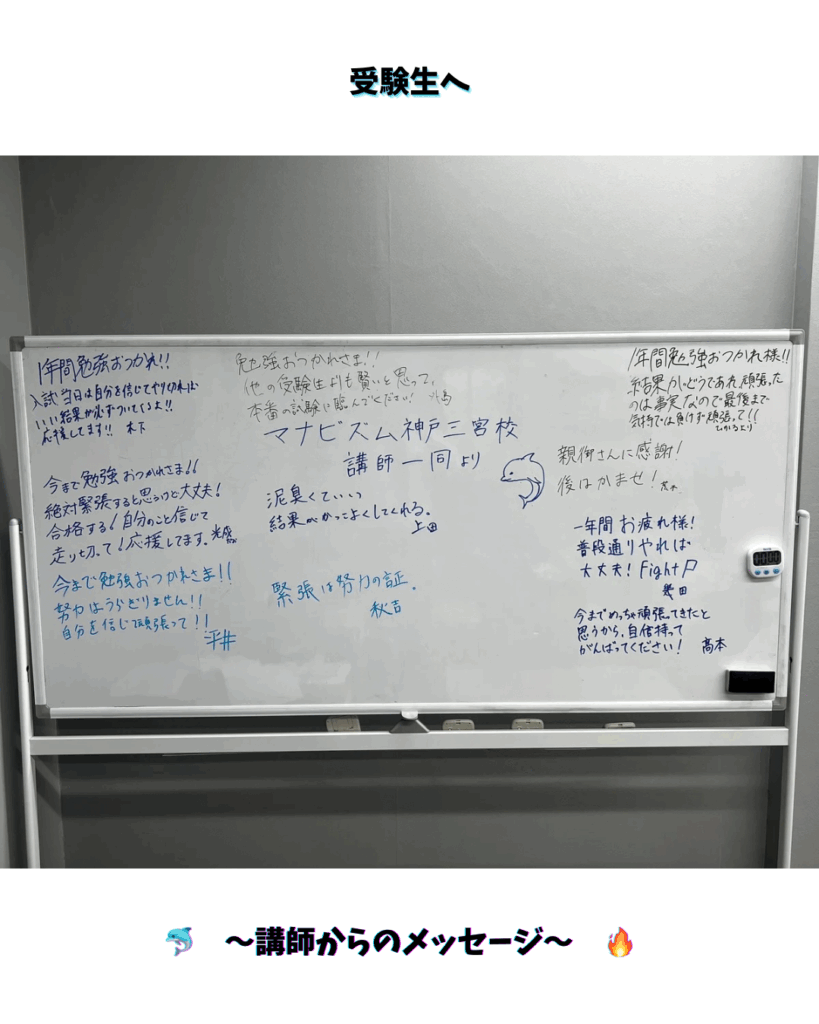 受験生へ
1年間勉強おつかれ!!
入試当日は自分を信じてやり切れば
いい結果が必ずついてくるよ!!
応援してます!! 木下
今まで勉強おつかれさま!!
絶対緊張すると思うけど大丈夫!
合格する!自分のこと信じて
走り切って!応援してます。
今まで勉強おつかれさま!!
努力はうらぎりません!!
自分を信じ頑張って!!
平井
勉強おつかれさま!!
他の受験生よりも賢いと思って、
本番の試験に臨んでください!
マナビズム神戸三宮校
講師一同より
泥臭くていい
結果がかっこよくしてくれる。
上田
緊張は努力の証。
秋吉
1年間勉強おつかれ様!!
結果がどうであれ頑張った
のは事実なので最後まで
気持ちでは負けず頑張って!!
ひかるより
親御さんに感謝!
後はかませ!
一年間お疲れ様!
普段通りやれば
大丈夫! Fight
幾田
今までめっちゃ頑張ってきたと
思うから、自信持って
がんばってください! 高本
〜講師からのメッセージ〜